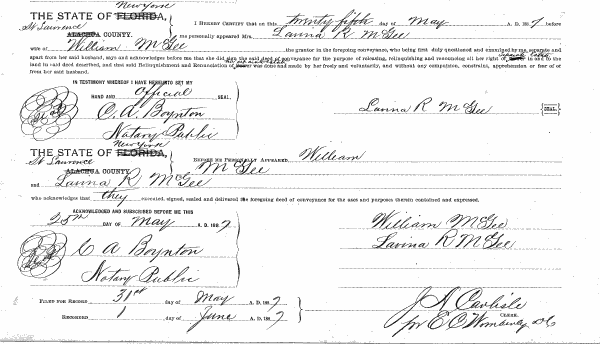 New York
THE STATE OF FLORIDA,
St Lawrence
ALACHUA COUNTY.
I HEREBY CERTIFY that on this twenty fifth day of May A. D. 1887 before
me personally appeared Mrs. Lavina R McGee
wife of William McGee the grantor in the foregoing conveyance, who being first duly questioned and examined by me separate and
apart from her said husband, says and acknowledges before me that she did sign the said deed of conveyance for the purpose of releasing, relinquishing and renouncing all her right of separate estate in and to the
land in said deed described, and that said Relinquishment and Renunciation of separate estate was done and made by her freely and voluntarily, and without any compulsion, constraint, apprehension or fear of or
from her said husband.
IN TESTIMONY WHEREOF I HAVE HEREUNTO SET MY
HAND AND Official SEAL.
C. A. Boynton
Notary Public
Lavina R McGee SEAL.
New York
THE STATE OF FLORIDA,
St Lawrence
ALACHUA COUNTY
BEFORE ME PERSONALLY APPEARED William
McGee
and Lavina R McGee
who acknowledges that they executed, signed, sealed and delivered the foregoing deed of conveyance for the uses and purposes therein contained and expressed.
ACKNOWLEDGED AND SUBSCRIBED BEFORE ME THIS
25th DAY OF May A. D. 1887
C A Boynton
Notary Public
William McGee
Lavina R McGee
FILED FOR RECORD 31st day of May A. D. 1887
RECORDED 1 day of June A. D. 1887
J A Carlisle
CLERK.
pr E C Womberley D C